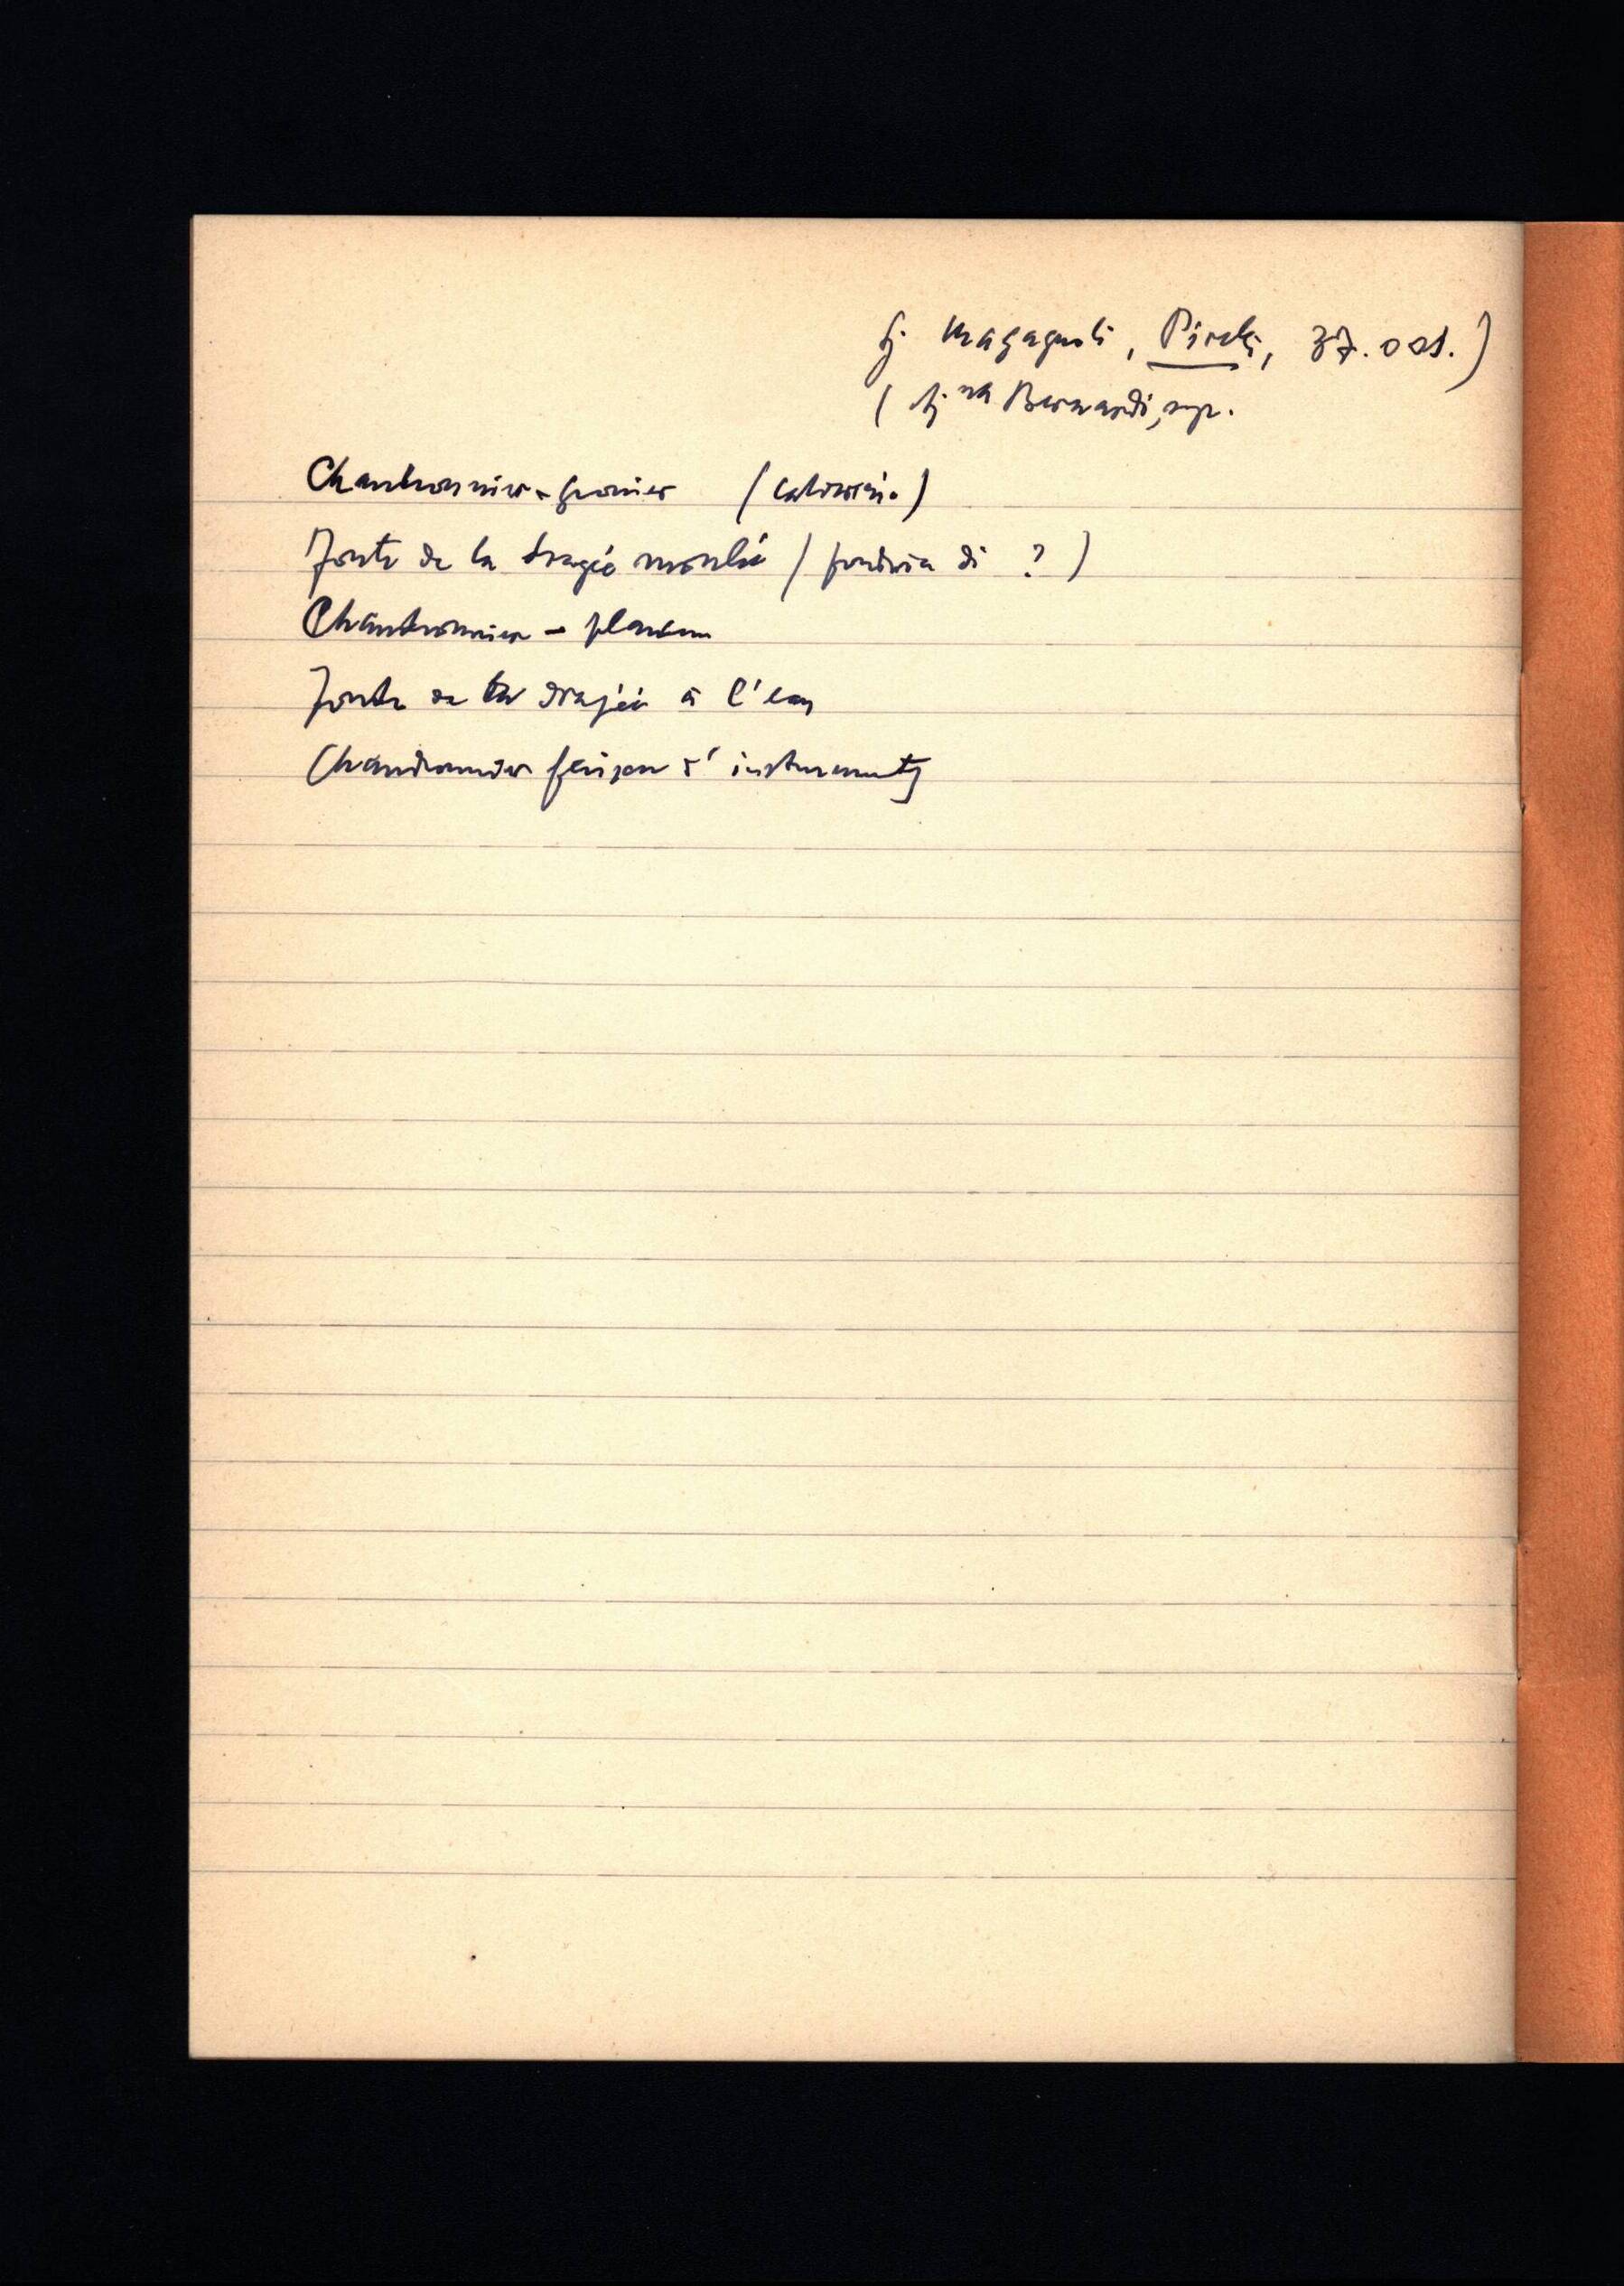 Sj Magagnoli, Pirelli, 37.001.)
( Sj na Bernardi, sup.
Chaudronnier-grosier (calderaio)
Fonte de la dragée moulée (fonderia di ? )
Chaudronnier - planeur
Fonte de la dragée à l'eau
Chaudronnier faiseur d'instruments